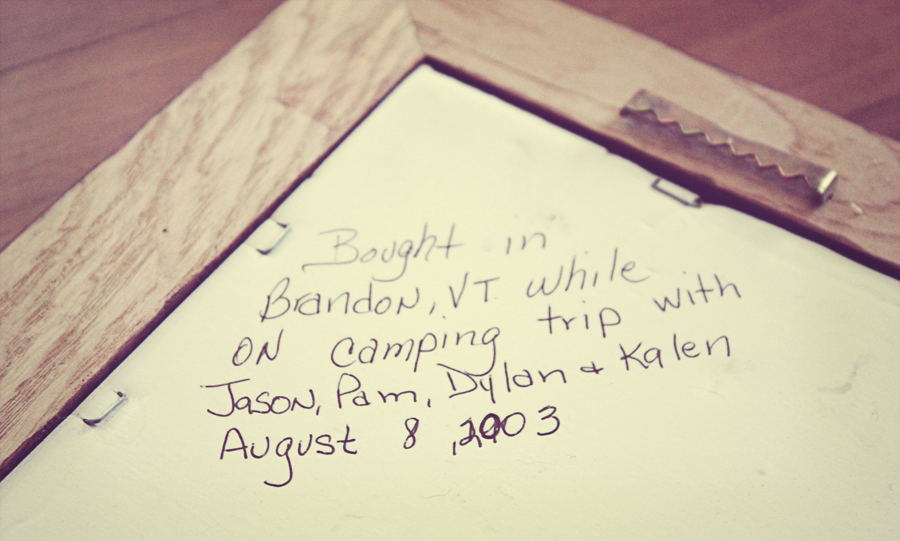 Bought in
Brandon, VT while
on camping trip with
Jason, Pam, Dylan & Kalen
August 8, 2003